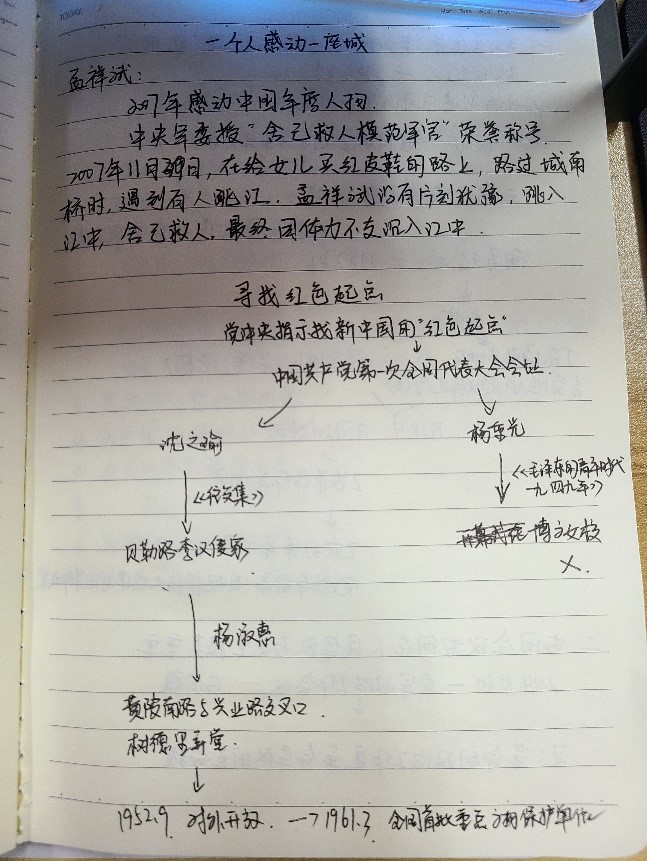 TODAY /
一个人感动一座城
孟祥斌:
2007年感动中国年度人物.
中央军委授“舍己救人模范军官”荣誉称号.
2007年11月30日,在给女儿买红皮鞋的路上,路过城南
桥时,遇到有人跳江.孟祥斌没有片刻犹豫,跳入
江中,舍己救人.最终因体力不支沉入江中.
寻找红色起点
党中央指示找新中国用“红色起点”
中国共产党第一次全国代表大会会址.
沈之瑜
杨重光
《往文集》
《毛泽东的青年时代
一九四九年》
贝勒路李汉俊家
博文女校
×.
杨淑惠
黄陂南路与兴业路交叉口
树德里弄堂.
1952.9 对外开放. → 1961.3 全国首批重点文物保护单位